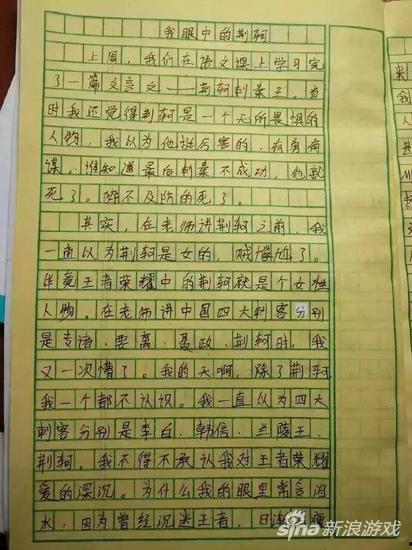 我眼中的荆轲
上周，我们在语文课上学习完
了一篇文言文——荆轲刺秦王。当
时我还觉得荆轲是一个无所畏惧的
人物，我以为他挺厉害的，有勇有
谋。谁知道最后刺秦不成功，他就
死了。猝不及防的死了。
其实，在老师讲荆轲之前，我
一直以为荆轲是女的，贼尴尬了。
毕竟王者荣耀中的荆轲就是个女性
人物。在老师讲中国四大刺客分别
是专诸、要离、聂政、荆轲时，我
又一次懵了。我的天啊，除了荆轲，
我一个都不认识。我一直以为四大
刺客分别是李白、韩信、兰陵王、
荆轲。我不得不承认我对王者荣耀
爱的深沉。为什么我的眼里常含泪
水，因为曾经沉迷王者，日
来
sina新浪游戏